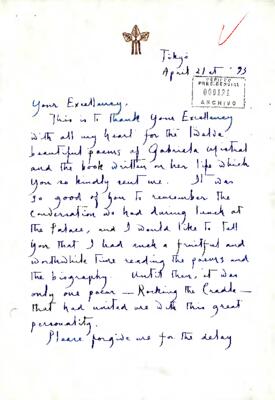 Tokyo
April 21st '93
PRESIDENCIAL
ARCHIVO
Your Excellency,
This is to thank Your Excellency
with all my heart for the twelve
beautiful poems of Gabriela Mistral
and the book written on her life which
you so kindly sent me. It was
so good of you to remember the
conversation we had during lunch at
the Palace, and I would like to tell
you that I had such a fruitful and
worthwhile time reading the poems and
the biography. Until then, it was
only one poem — Rocking the Cradle —
that had united me with this great
personality.
Please forgive me for the delay